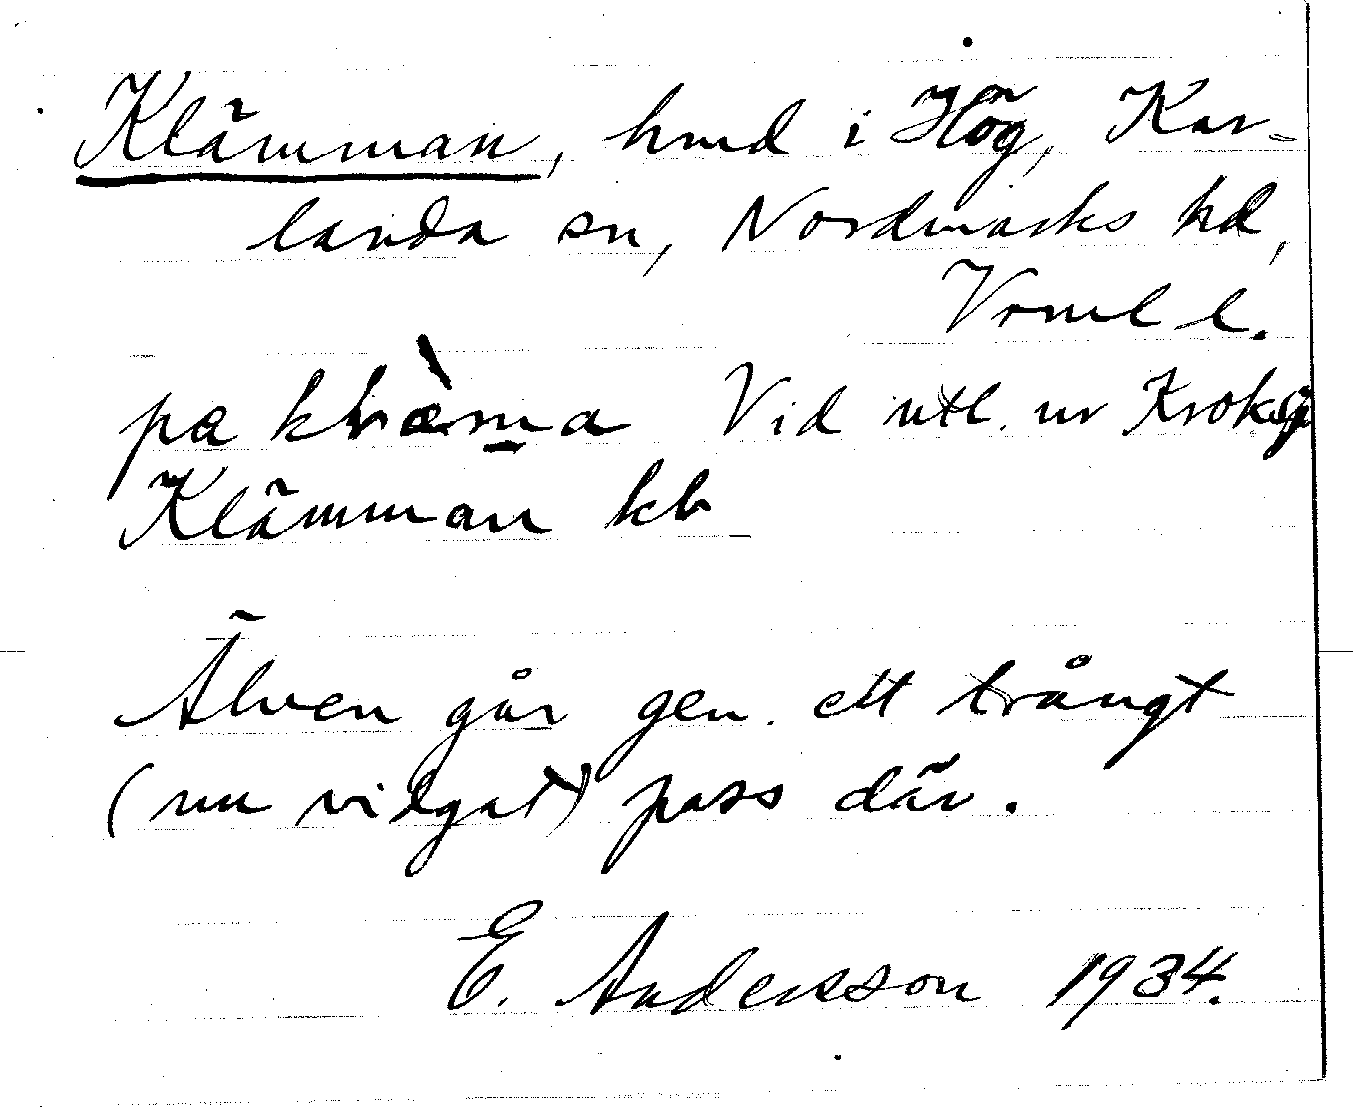 Klämman, hmd i Hög, Kar-
landa sn, Nordmarks hd,
Vrml l.
pa klæ̀ma Vid utl. ur Kroksj
Klämman kb
Älven går gen. ett trångt
(nu vidgat) pass där.
E. Andersson 1934.